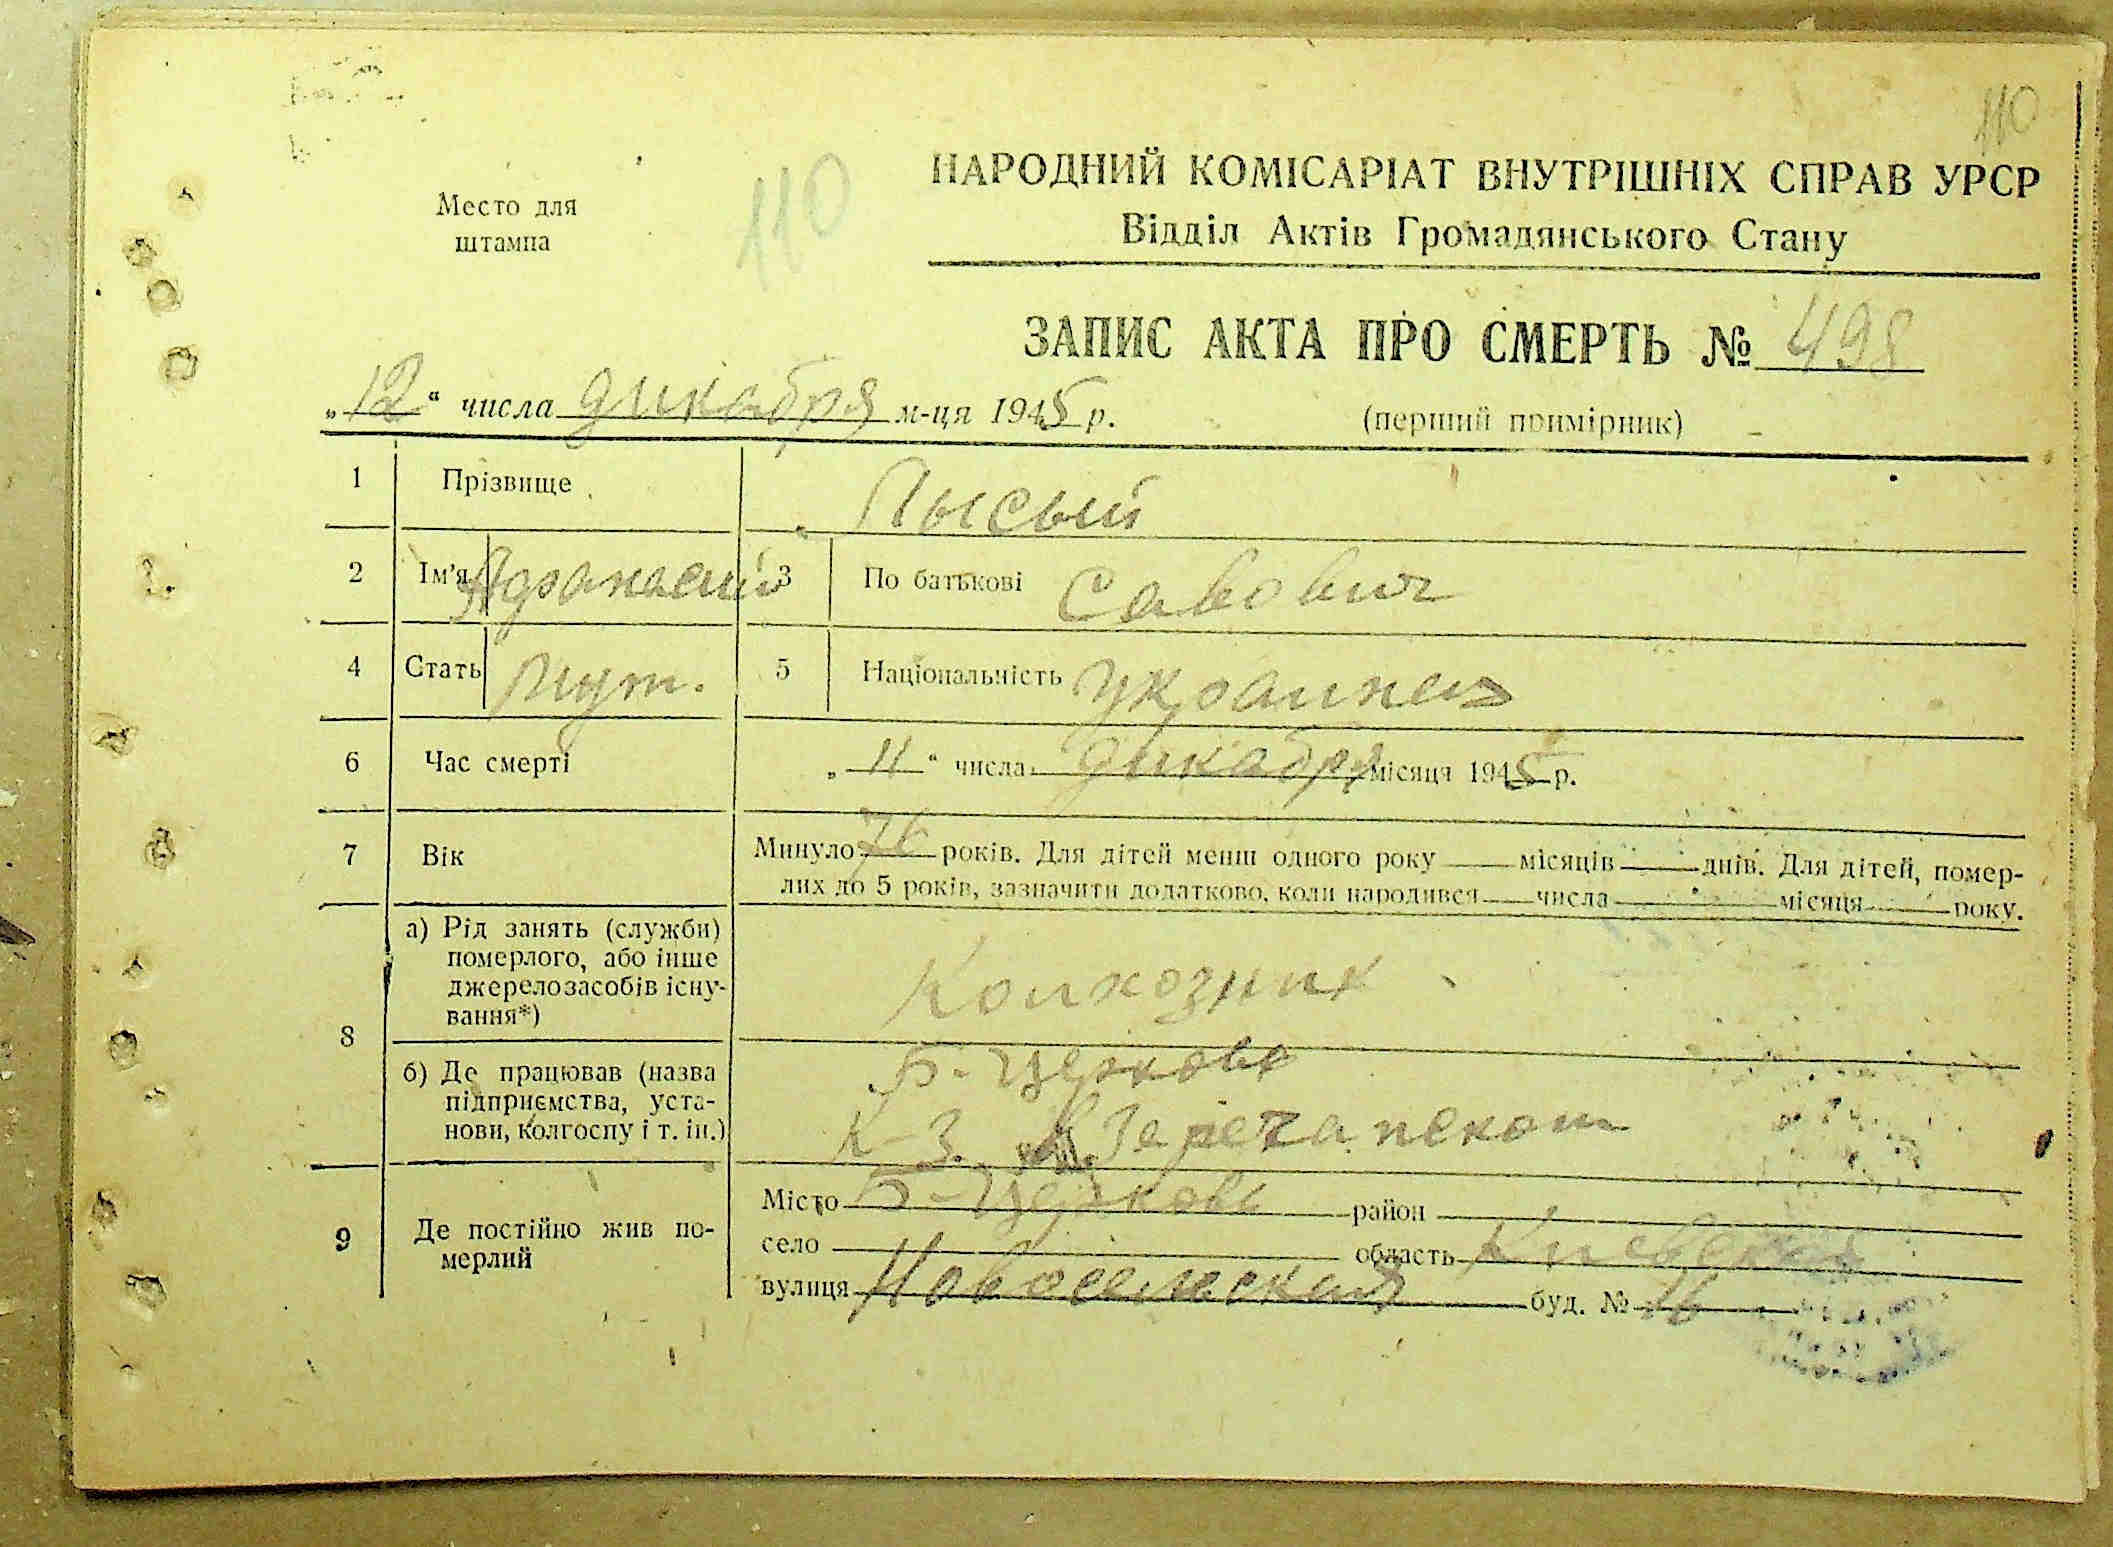 110
НАРОДНИЙ КОМІСАРІАТ ВНУТРІШНІХ СПРАВ УРСР
Место для штампа
110
Відділ Актів Громадянського Стану
ЗАПИС АКТА ПРО СМЕРТЬ № 498
„12“ числа дикабря м-ця 1945 р.
(перший примірник)
1 Прізвище Лысый
2 Ім'я Афанасий 3 По батькові Савович
4 Стать муж. 5 Національність Украинец
6 Час смерті „11“ числа дикабря місяця 1945 р.
7 Вік Минуло 76 років. Для дітей менш одного року місяців днів. Для дітей, помер-
лих до 5 років, зазначити додатково, коли народився числа місяця року.
8 а) Рід занять (служби)
померлого, або інше
джерело засобів існу-
вання*)
Колхозник
б) Де працював (назва
підприємства, уста-
нови, колгоспу і т. ін.)
Б-Церковь
К-З. в Заречанском
9 Де постійно жив по-
мерлий
Місто Б-Церковь район
село область Киевская
вулиця Новоселеская буд. № 16